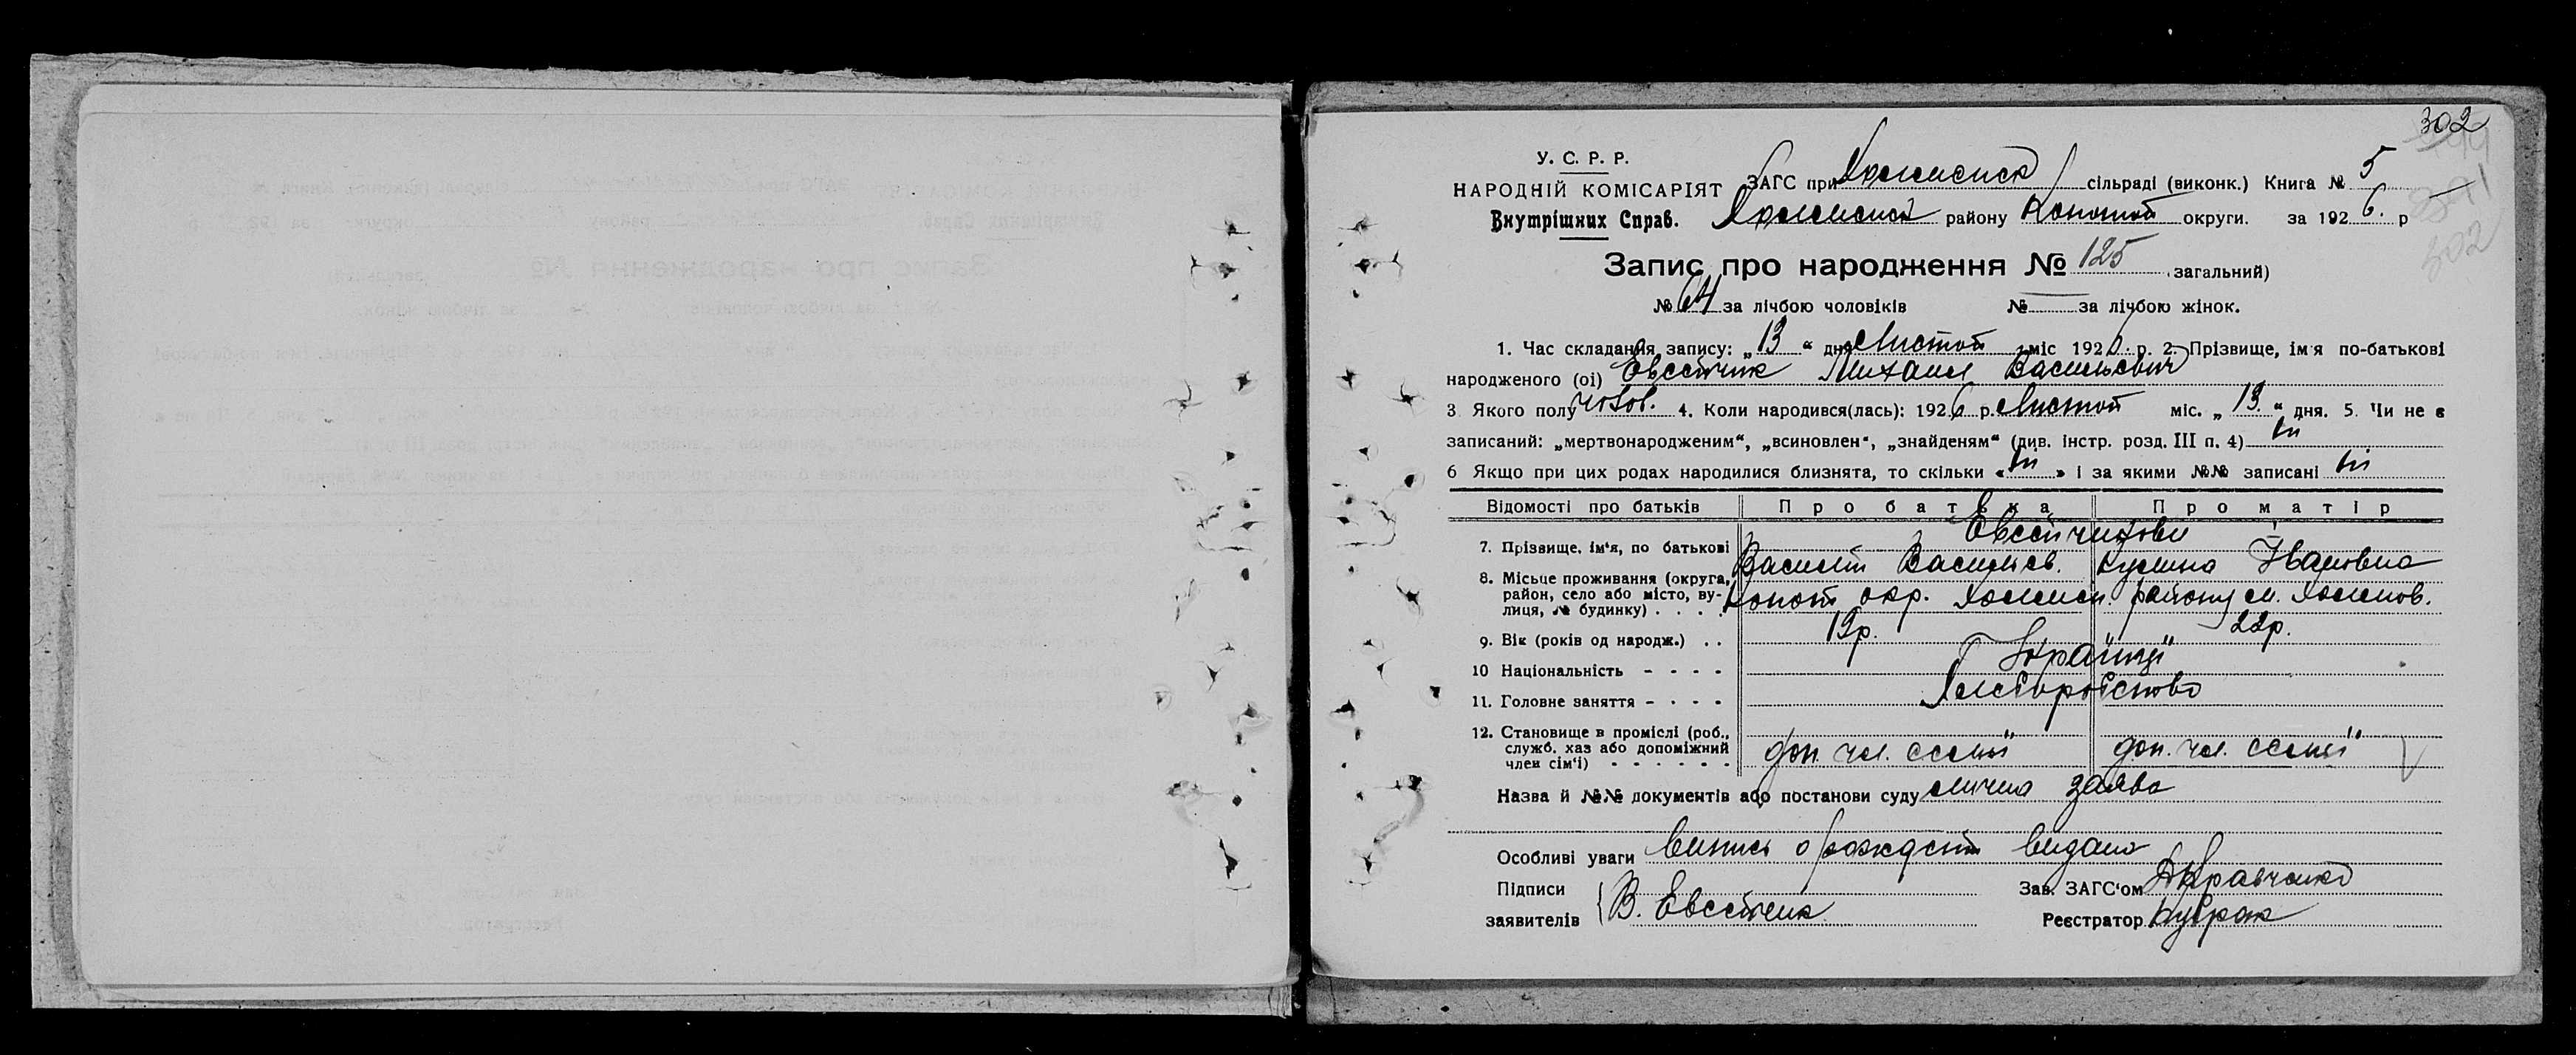 302
У. С. Р. Р.
НАРОДНІЙ КОМІСАРІЯТ
Внутрішних Справ.
ЗАГС при сільраді (виконк.) Книга № 5
району Конотоп округи. за 1926. р
Запис про народження № 125 загальний)
№ 64 за лічбою чоловіків № за лічбою жінок.
1. Час складання запису: „13“ дня Листоп міс 1926. р. 2. Прізвище, імя по-батькові
народженого (ої) Евсейчик Михаил Васильевич
3 Якого полу чолов. 4. Коли народився(лась): 1926 р. Листоп міс. „13.“ дня. 5. Чи не є
записаний: „мертвонародженим“, „всиновлен“, „знайденям“ (див. інстр. розд. III п. 4) ні
6 Якщо при цих родах народилися близнята, то скільки «ні» і за якими №№ записані ні
Відомості про батьків Про батька Про матір
7. Прізвище, ім‘я, по батькові
Василій Васильев. Ивановна
8. Місьце проживання (округа, район, село або місто, вулиця, № будинку) . . . .
Коноп окр. району м.
9. Вік (років од народж.) . . 19р. 22р.
10 Національність - - - - Українці
11. Головне заняття - - - - Хліборобство
12. Становище в промислі (роб., служб. хаз або допоміжний член сім‘ї) - - - - - -
доп. чл. семьї доп. чл. семьї
Назва й №№ документів або постанови суду лична заява
Особливі уваги выпись о рождении видано
Підписи
заявителів В. Евсейчик
Зав. ЗАГС‘ом Кравченко
Реєстратор